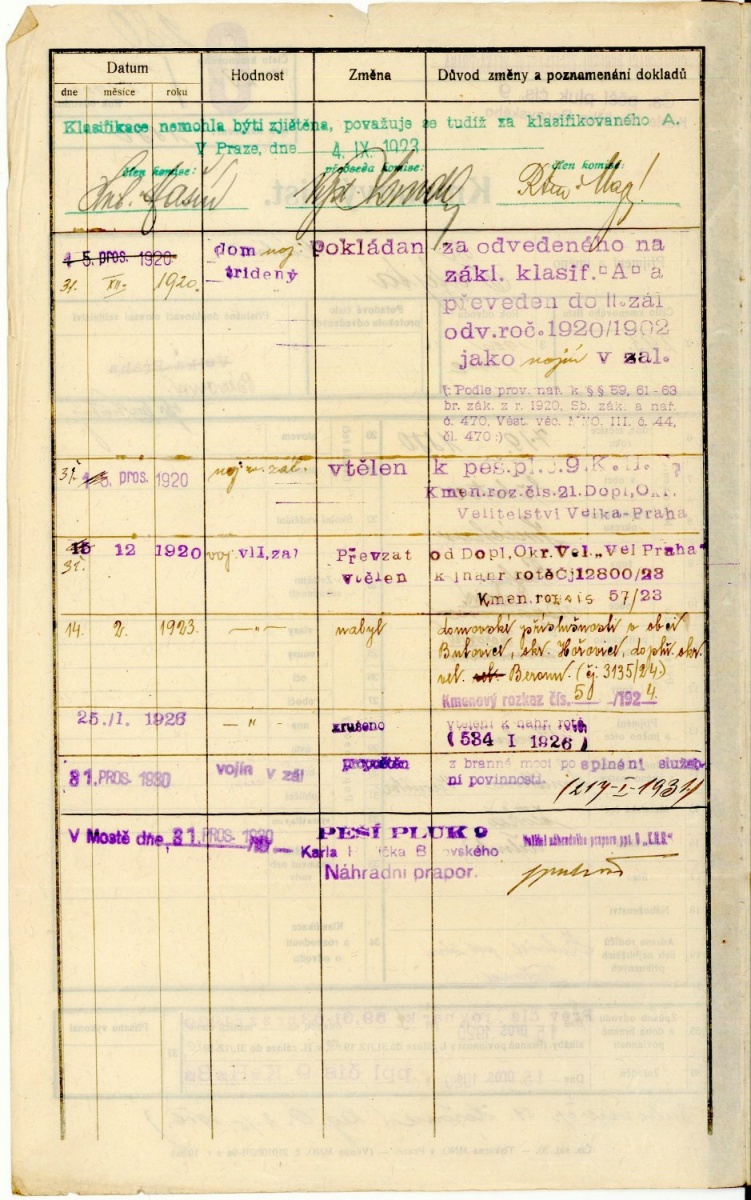 Datum
Hodnost
Změna
Důvod změny a poznamenání dokladů
dne
měsíce
roku
Klasifikace nemohla býti zjištěna, považuje se tudíž za klasifikovaného A.
V Praze, dne 4. IX. 1923
člen komise: předseda komise: člen komise:
15. pros. 1920
31. XII. 1920.
dom voj
třídený
pokládan
za odvedeného na
zákl. klasif. "A" a
převeden do II. zál
odv. roč. 1920/1902
jako vojín v zal.
(: Podle prov. nař. k §§ 59, 61-63
br. zák. z r. 1920, Sb. zák. a nař.
č. 470, Věst. věc. MNO. III. č. 44,
čl. 470 :)
31. 15. pros. 1920
voj. v. zál.
vtělen
k pěš. pl. č. 9. K. H.
Kmen. roz. čís. 21. Dopl. Okr.
Velitelství Velka-Praha
15 12 1920
31.
voj. v II. zal
Převzat
vtělen
od Dopl. Okr. Vel. „Vel Praha"
k nahr rotě Čj 12800/23
Kmen. rozkaz čis 57/23
14. 2. 1923.
—"—
nabyl
domovské příslušnosti v obci
Butovice, okr. Hořovice, doplň. okr.
vel. Beroun. (čj. 3135/24)
Kmenový rozkaz čís. 50 /192 4.
25./I. 1926
—"—
zrušeno
vtělení k nahr. rotě
(534 I 1926)
31. PROS. 1930
vojín v zál
propuštěn
z branné moci po splnění služeb-
ní povinnosti.
(217-I-1931)
V Mostě dne 31. PROS. 1930
PĚŠÍ PLUK 9
Karla H vlíčka B ovského
Náhradní prapor.
Velitel náhradního praporu pěš. pl. 9 „K.H.B."